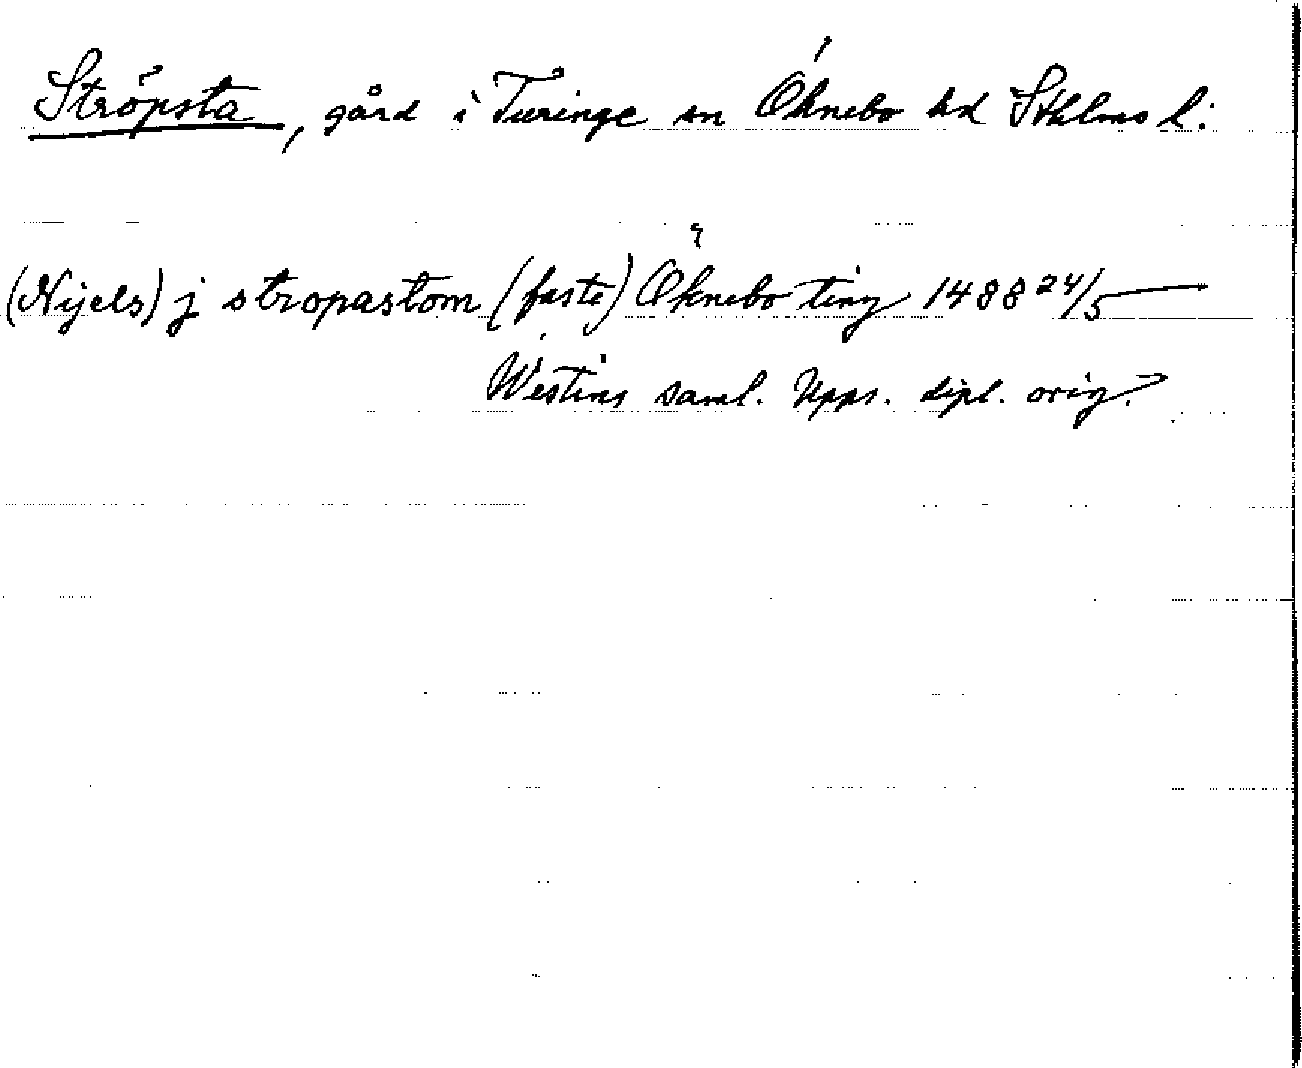 Ströpsta, gård i Turinge sn Öknebo hd Sthlms l.
(Nijels) j stropastom (faste) Öknebo ting 1488 24/5
Westins saml. Upps. dipl. orig.